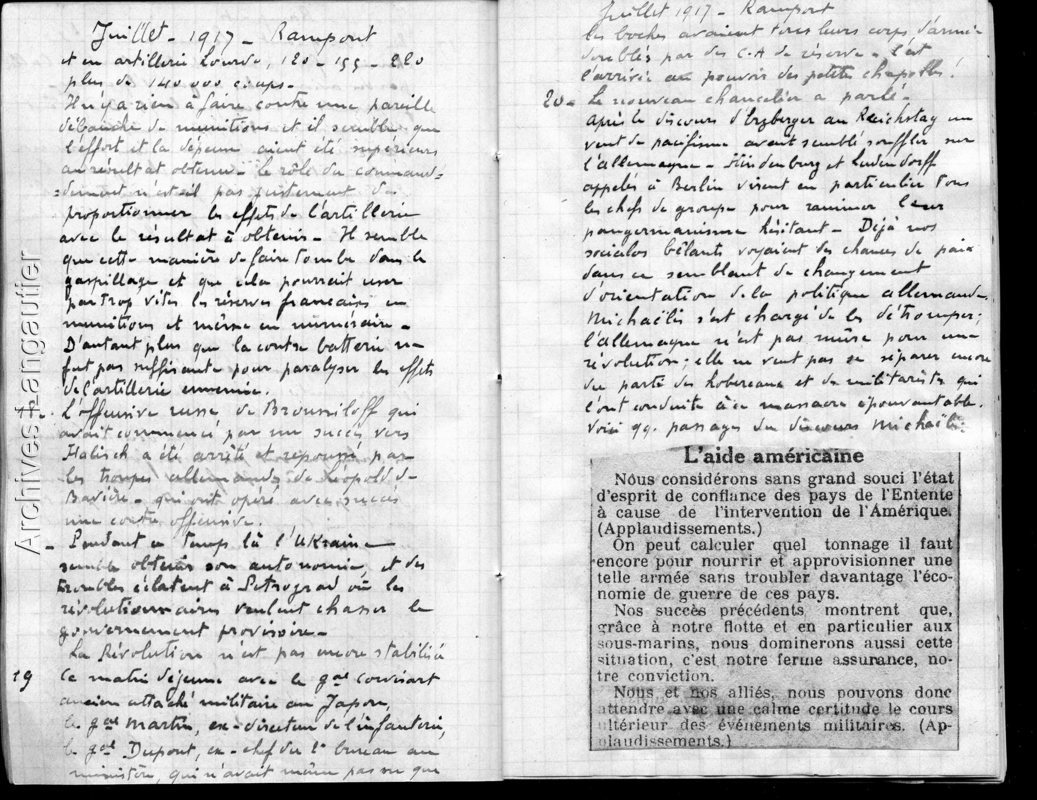 Juillet - 1917 - Rampont
et en artillerie Lourde, 120 - 155 - 220
plus de 140 000 coups -
Il n'y a rien à faire contre une pareille
débauche de munitions et il semble que
l'effort et la dépense aient été supérieurs
au résultat obtenu - le rôle du command=
=dement n'est-il pas justement de
proportionner les effets de l'artillerie
avec le résultat à obtenir - Il semble
que cette manière de faire tombe dans le
gaspillage et que cela pourrait user
par trop vite les réserves françaises en
munitions et même en numéraire -
D'autant plus que la contre batterie ne
fut pas suffisante pour paralyser les effets
de l'artillerie ennemie.
L'offensive russe de Broussiloff qui
avait commencé par un succès vers
Halisch a été arrêté et repoussé par
les troupes allemandes de Léopold de
Bavière - qui ont opéré avec succès
une contre offensive.
- Pendant ce temps là l'Ukraine
semble obtenir son autonomie, et des
troubles éclatent à Petrograd où les
révolutionnaires veulent chasser le
gouvernement provisoire -
La Révolution n'est pas encore stabilisée
19 Ce matin déjeuné avec le gal Corvisart
ancien attaché militaire au Japon,
le gal Martin, ex-directeur de l'infanterie,
le gal Dupont, ex-chef du 2e bureau au
ministère, qui n'avait même pas vu que
Juillet 1917 - Rampont
les boches avaient tous leurs corps d'armée
doublés par des C.A de réserve - C'est
l'arrivée au pouvoir des petites chapelles!
20 - Le nouveau chancelier a parlé -
Après le discours d'Erzberger au Reichstag un
vent de pacifisme avait semblé souffler sur
l'allemagne - Hindenburg et Ludendorff
appelés à Berlin virent en particulier tous
les chefs de groupe pour ranimer leur
pangermanisme hésitant - Déjà nos
socialos bêlants voyaient des chances de paix
dans ce semblant de changement
d'orientation de la politique allemande,
Michaëlis s'est chargé de les détromper;
l'allemagne n'est pas mûre pour une
révolution; elle ne veut pas se séparer encore
du parti des hobereaux et des militaristes qui
l'ont conduite à ce massacre épouvantable.
Voici qq. passages du discours Michaëlis:
L'aide américaine
Nous considérons sans grand souci l'état
d'esprit de confiance des pays de l'Entente
à cause de l'intervention de l'Amérique.
(Applaudissements.)
On peut calculer quel tonnage il faut
encore pour nourrir et approvisionner une
telle armée sans troubler davantage l'éco-
nomie de guerre de ces pays.
Nos succès précédents montrent que,
grâce à notre flotte et en particulier aux
sous-marins, nous dominerons aussi cette
situation, c'est notre ferme assurance, no-
tre conviction.
Nous et nos alliés, nous pouvons donc
attendre avec une calme certitude le cours
ultérieur des événements militaires. (Ap-
plaudissements.)
Archives#Langautier